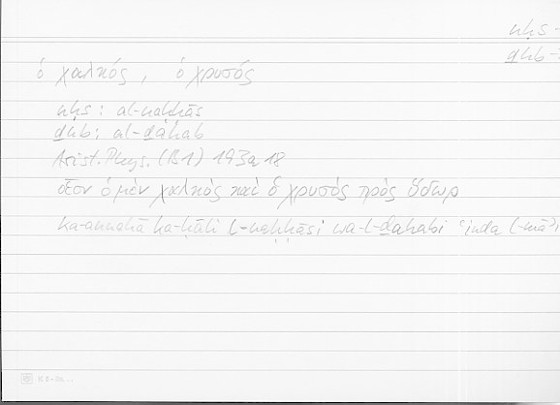 nḥs
ḏhb
ὁ χαλκός, ὁ χρυσός
nḥs: al-naḥḥās
ḏhb: al-ḏahab
Arist. Phys. (B1) 193a18
οἷον ὁ μὲν χαλκὸς καὶ ὁ χρυσὸς πρὸς ὕδωρ
ka-annahā ka-ḥāli l-naḥḥāsi wa-l-ḏahabi ʿinda l-māʾi